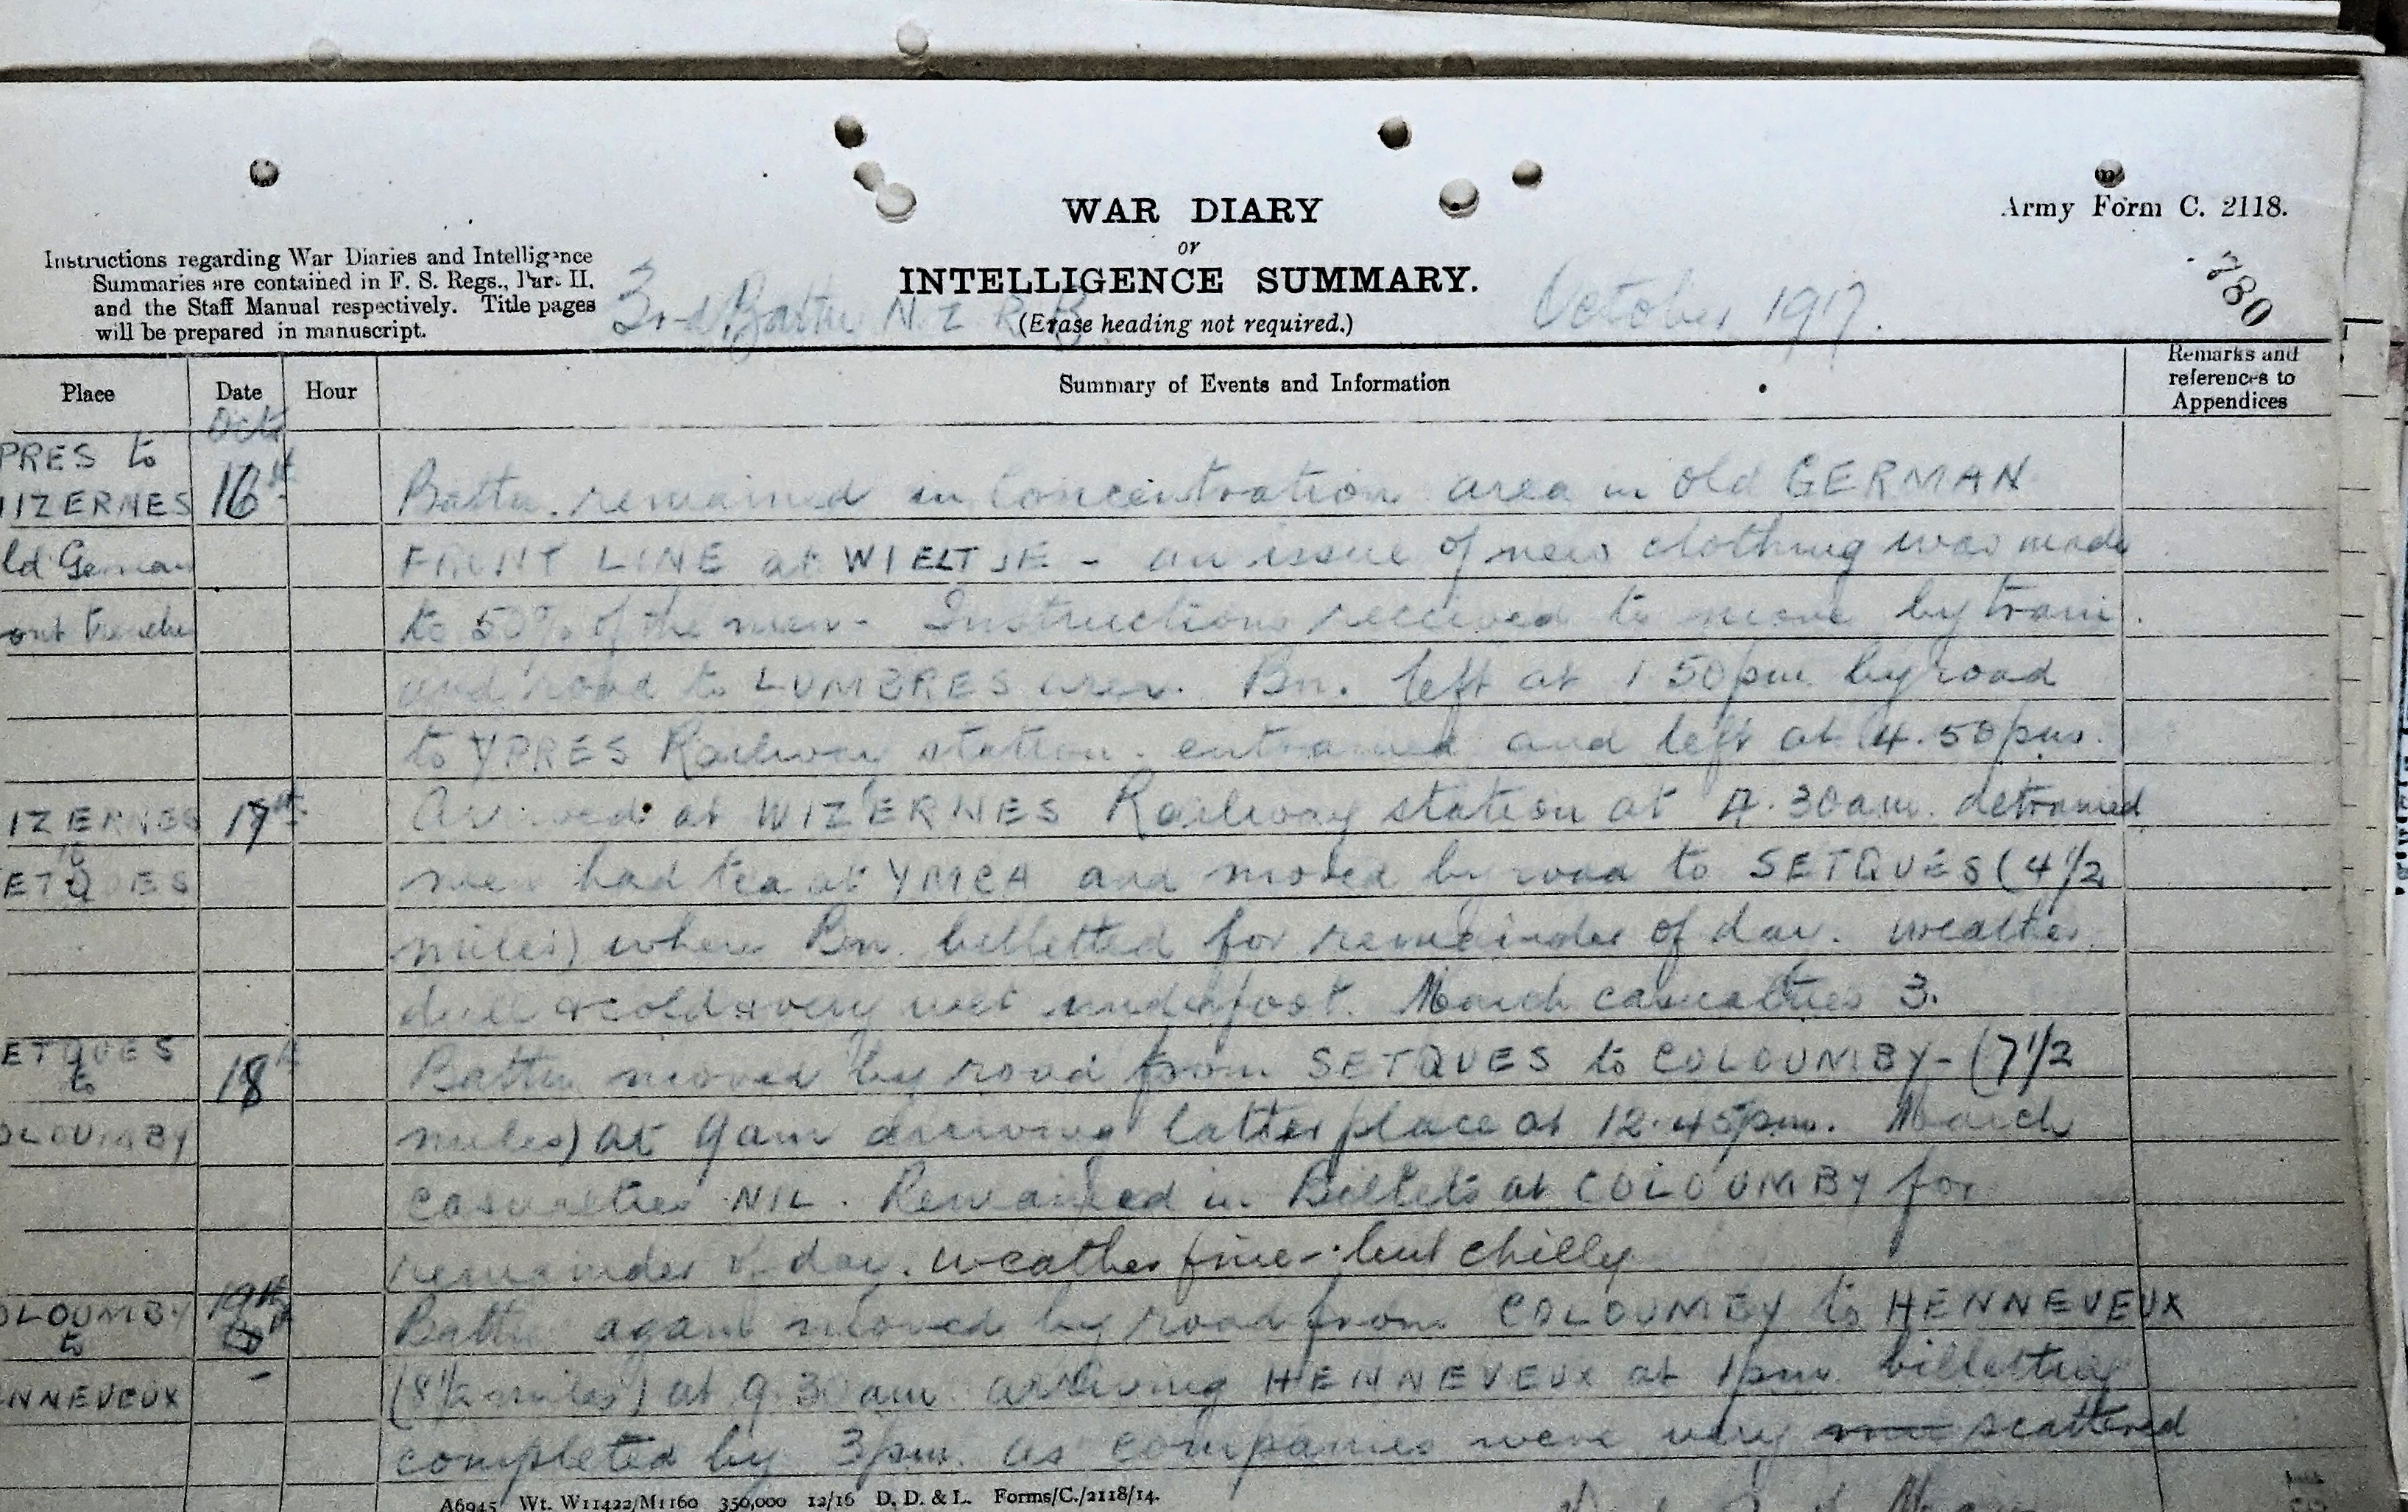 WAR DIARY
or
INTELLIGENCE SUMMARY.
(Erase heading not required.)
Army Form C. 2118.
780
Instructions regarding War Diaries and Intelligence
Summaries are contained in F. S. Regs., Part II.
and the Staff Manual respectively. Title pages
will be prepared in manuscript.
3rd Battn N.Z R.B.
October 1917.
Place Date Hour Summary of Events and Information Remarks and references to Appendices
Oct
PRES to
IZERNES 16th Battn. remained in Concentration area in old GERMAN
ld German FRONT LINE at WIELTJE - an issue of new clothing was made
ont trenches to 50% of the men - Instructions received to move by train
and road to LUMBRES area. Bn. left at 1 50pm by road
to YPRES Railway station. entrained and left at 4.50pm.
IZERNES 17th Arrived at WIZERNES Railway station at 4.30am. detrained
to
ETQUES men had tea at YMCA and moved by road to SETQUES (4 1/2
miles) where Bn. billetted for remainder of day. weather
dull & cold & very wet underfoot. March casualties 3.
ETQUES
to 18th Battn moved by road from SETQUES to COLOUMBY - (7 1/2
OLOUMBY miles) at 9am arriving latter place at 12.45pm. March
casualties NIL. Remained in Billets at COLOUMBY for
remainder of day. weather fine - but chilly
OLOUMBY 19th
to Battn again moved by road from COLOUMBY to HENNEVEUX
NNEVEUX (8 1/2 miles) at 9 30 am arriving HENNEVEUX at 1pm. billetting
completed by 3pm. as companies were very scattered
A6945 Wt. W11422/M1160 350,000 12/16 D. D. & L. Forms/C./2118/14.